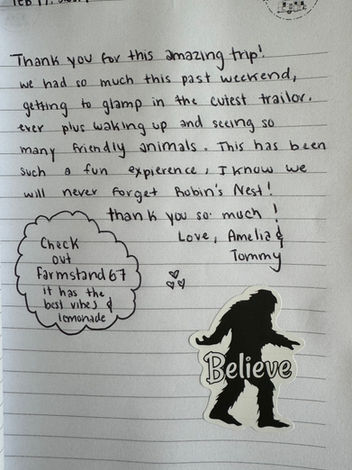 Thank you for this amazing trip!
we had so much this past weekend,
getting to glamp in the cutest trailor.
ever plus waking up and seeing so
many friendly animals. This has been
such a fun expierence, I know we
will never forget Robin's Nest!
thank you so much!
Love, Amelia &
Tommy
Check
out
Farmstand 67
it has the
best vibes &
lemonade
Believe